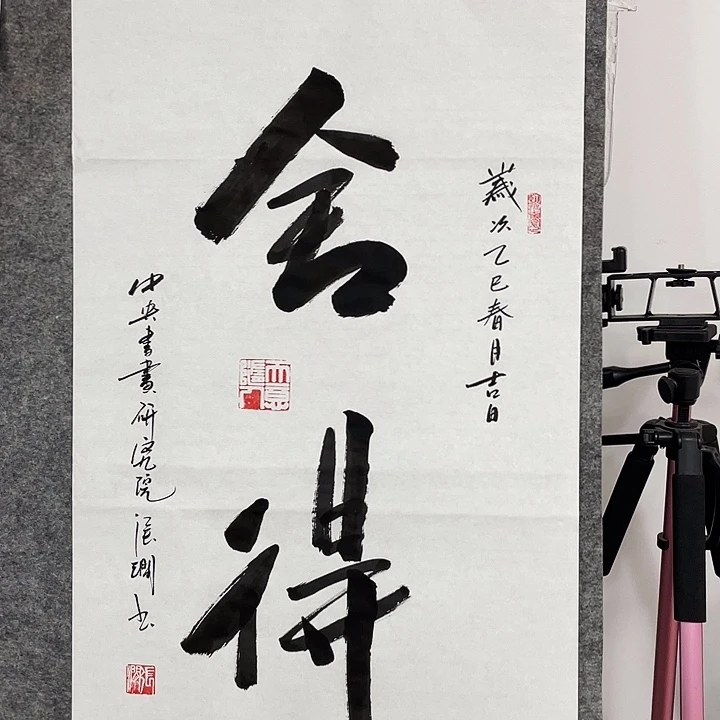 歲次乙巳春月吉日
舍得
中央書畫研究院 張瀾书